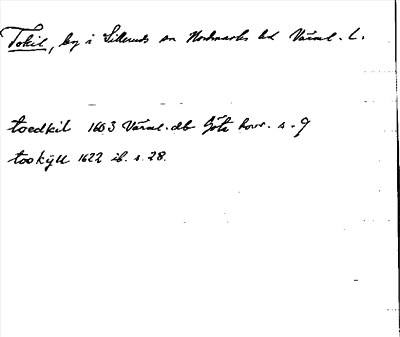 Tokil, by i Sillerud sn Nordmarks hd Värml. l.
toedkil 1603 Värml. db Göta hovr. s. 9
tookijll 1622 ib. s. 28.